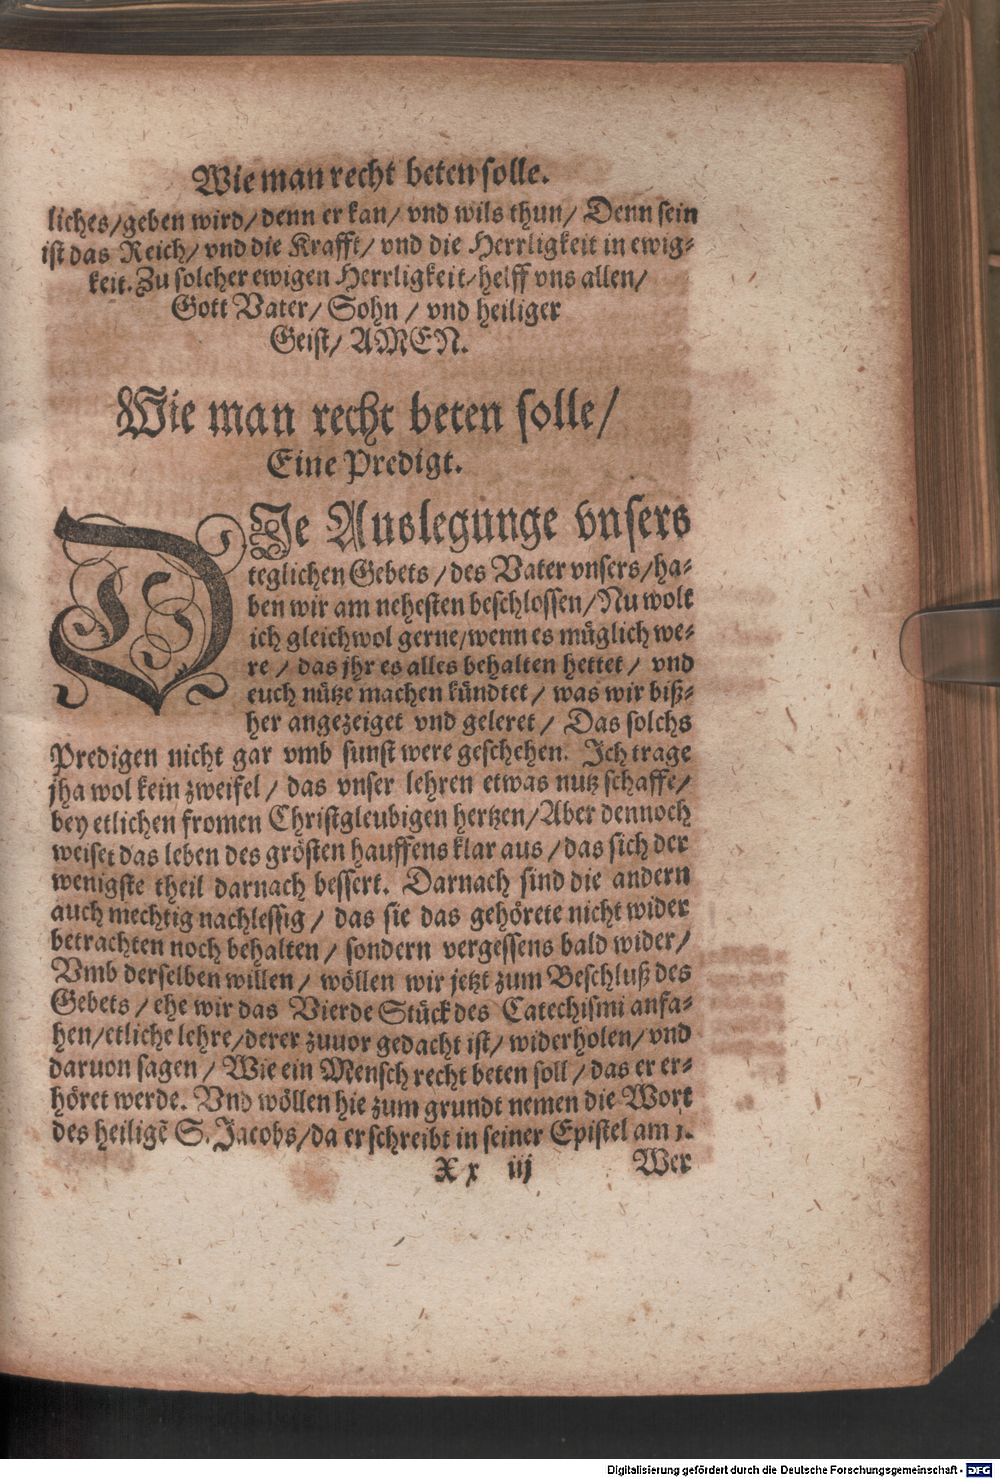 Wie man recht beten solle.
liches/geben wird/denn er kan/ vnd wils thun/ Denn sein
ist das Reich/ vnd die Krafft/ vnd die Herrligkeit in ewig-
keit. Zu solcher ewigen Herrligkeit/helff vns allen/
Gott Vater/ Sohn / vnd heiliger
Geist/ AMEN.
Wie man recht beten solle/
Eine Predigt.
DJe Auslegunge vnsers
teglichen Gebets /des Vater vnsers/ha-
ben wir am nehesten beschlossen/Nu wolt
ich gleichwol gerne/wenn es müglich we-
re / das jhr es alles behalten hettet/ vnd
euch nütze machen kündtet / was wir biß-
her angezeiget vnd geleret / Das solchs
Predigen nicht gar vmb sunst were geschehen. Ich trage
jha wol kein zweifel / das vnser lehren etwas nutz schaffe/
bey etlichen fromen Christgleubigen hertzen/Aber dennoch
weiset das leben des grösten hauffens klar aus /das sich der
wenigste theil darnach bessert. Darnach sind die andern
auch mechtig nachlessig / das sie das gehörete nicht wider
betrachten noch behalten / sondern vergessens bald wider/
Vmb derselben willen / wöllen wir jetzt zum Beschluß des
Gebets / ehe wir das Vierde Stück des Catechismi anfa-
hen/etliche lehre/derer zuuor gedacht ist/ widerholen/ vnd
daruon sagen / Wie ein Mensch recht beten soll / das er er-
höret werde. Vnd wöllen hie zum grundt nemen die Wort
des heiligē S. Jacobs/da er schreibt in seiner Epistel am 1.
X x iij Wer
Digitalisierung gefördert durch die Deutsche Forschungsgemeinschaft - DFG